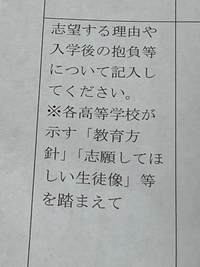 志望する理由や
入学後の抱負等
について記入し
てください。
※各高等学校が
示す「教育方
針」「志願してほ
しい生徒像」等
を踏まえて